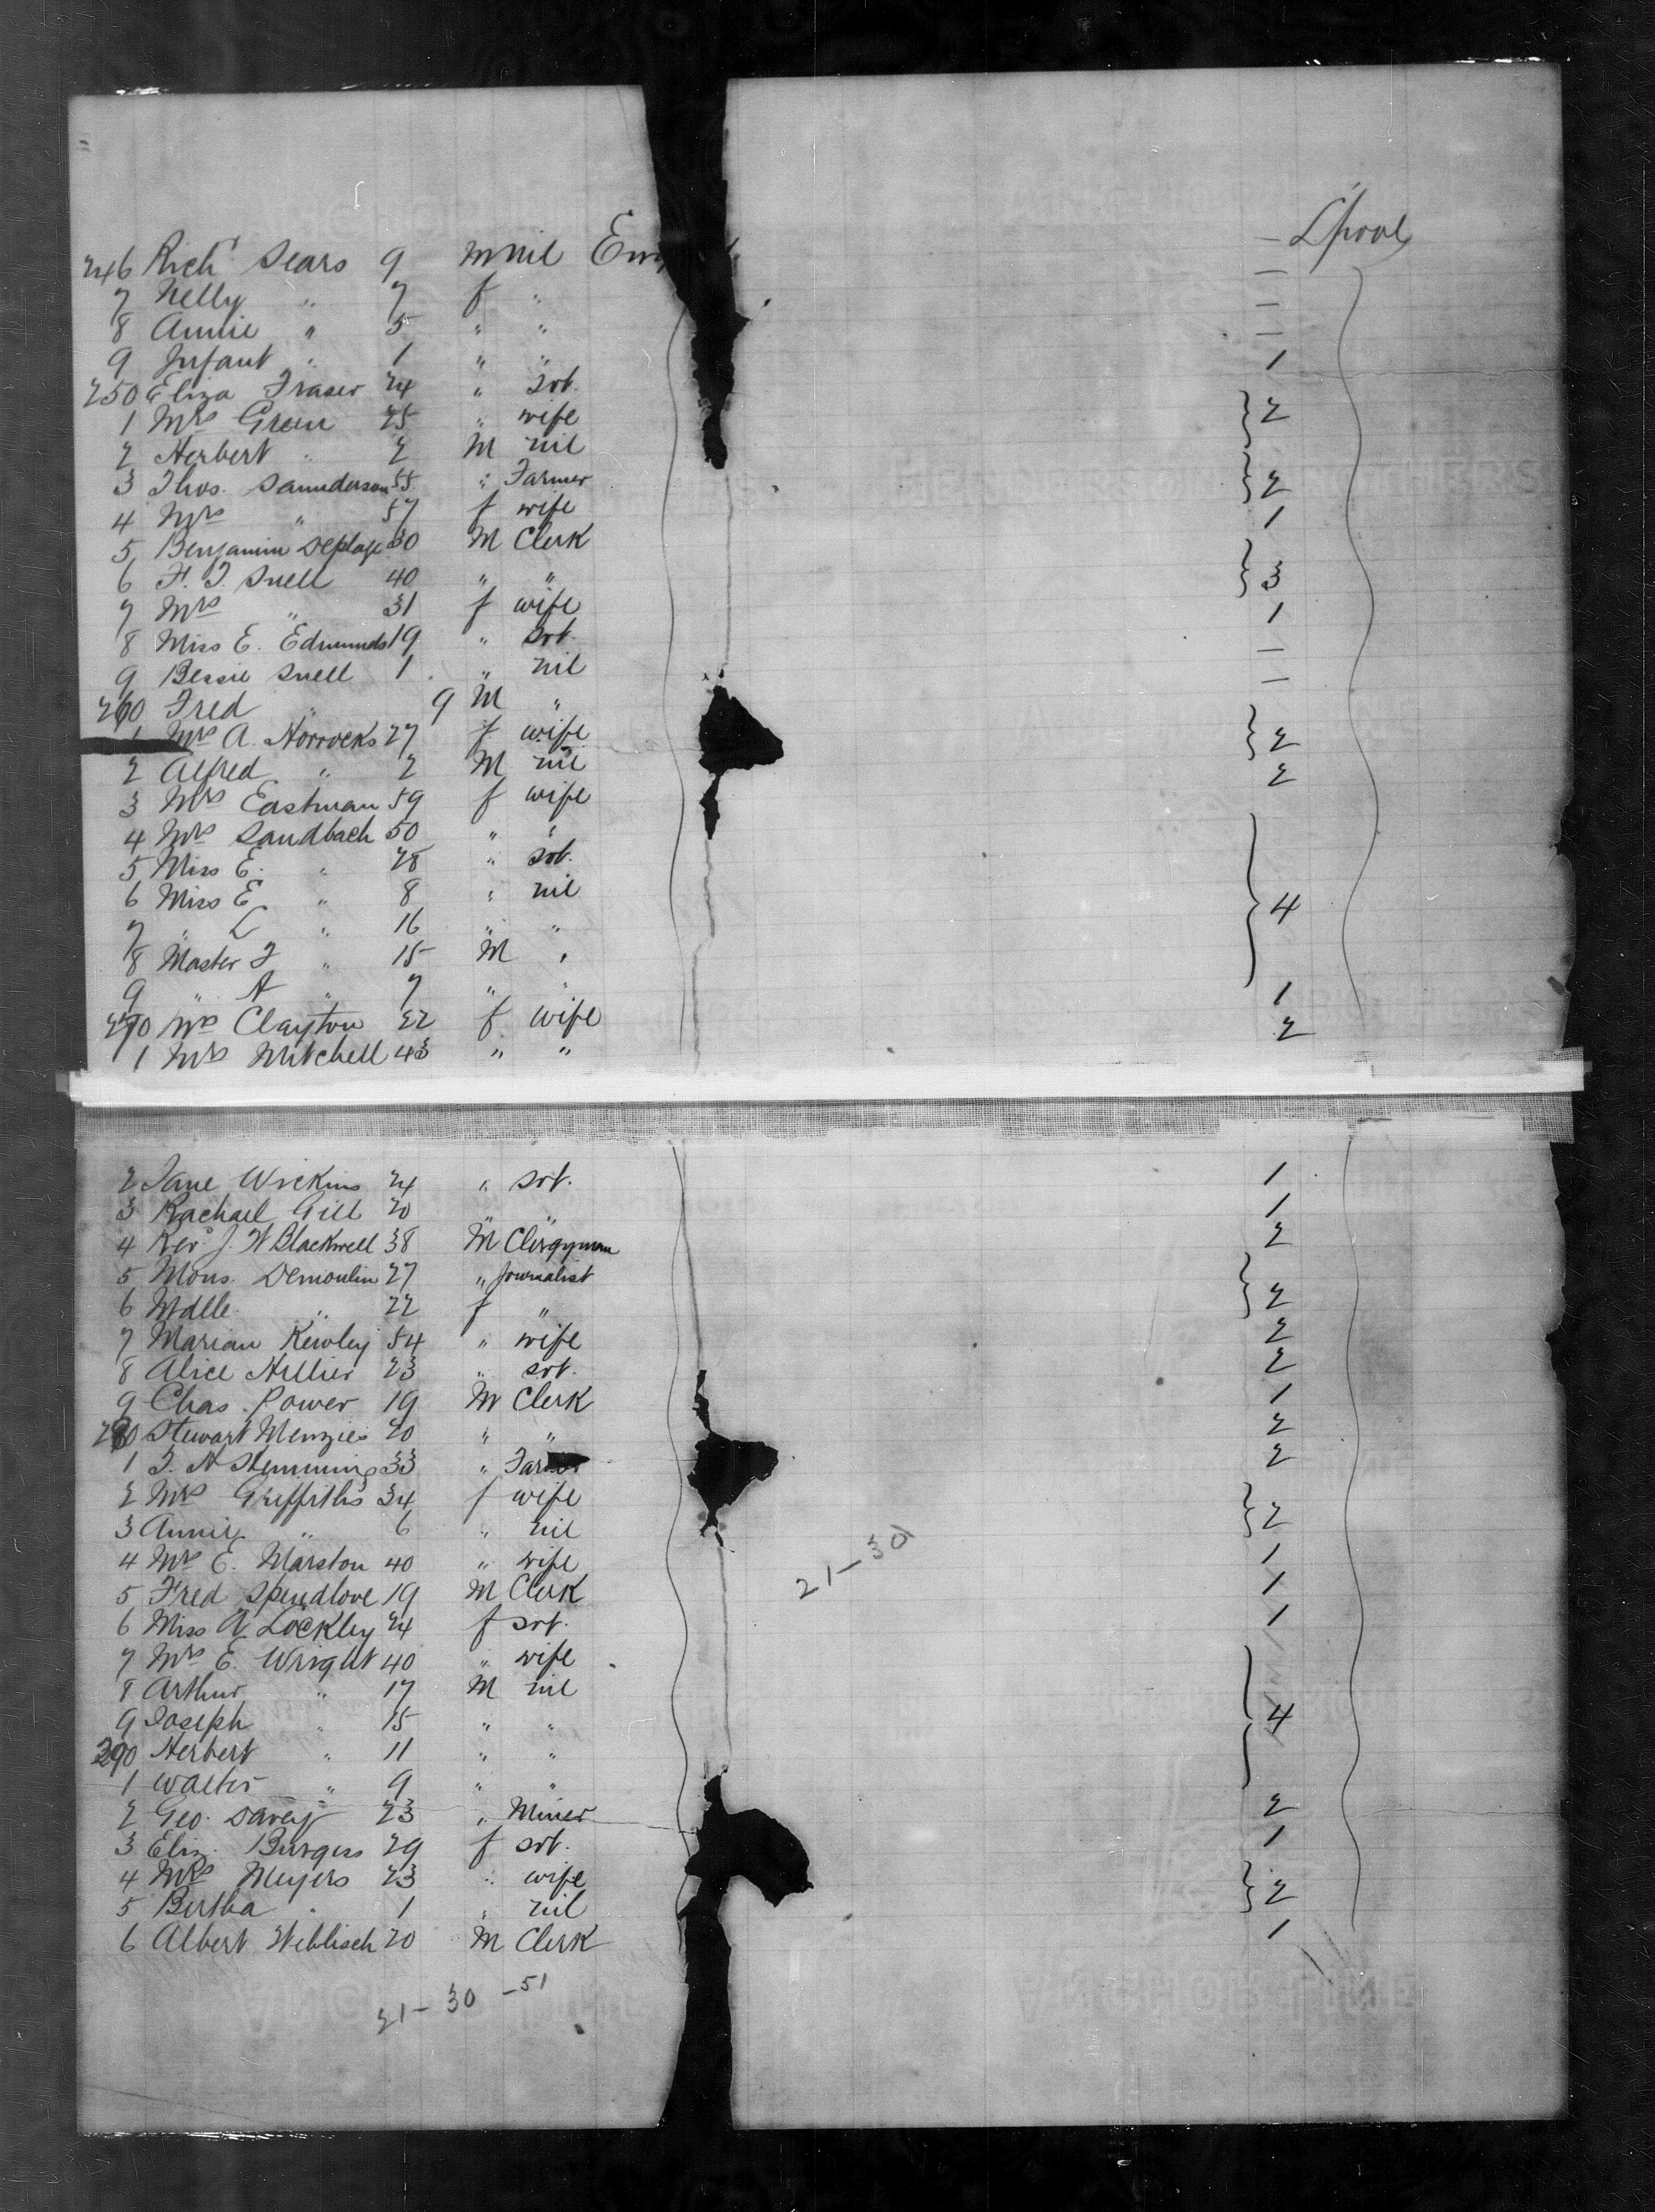 L'pool
246 Richd Sears 9 m nil Eng —
7 Nelly " 7 f " —
8 Annie " 5 " " —
9 Infant " 1 " " —
250 Eliza Fraser 24 " svt. 1
1 Mrs Green 25 " wife } 2
2 Herbert " 2 M nil
3 Thos. Saunderson 55 " Farmer } 2
4 Mrs " 57 f wife
5 Benjamin 30 M Clerk 1
6 F. J. Snell 40 " " } 3
7 Mrs " 31 f wife
8 Miss E. Edmunds 19 " svt. 1
9 Bessie Snell 1 " nil —
260 Fred " 9 M " —
1 Mrs A. Horrocks 27 f wife } 2
2 Alfred " 2 M nil
3 Mrs Eastman 59 f wife 2
4 Mrs Sandbach 50 " "
5 Miss E. " 28 " svt.
6 Miss E " 8 " nil } 4
7 " L " 16 " "
8 Master F " 15 M "
9 " A " 7 " "
270 Mrs Clayton 22 f wife 1
1 Mrs Mitchell 43 " " 2
2 Jane Wickins 24 " svt. 1
3 Rachael Gill 20 " " 1
4 Revd. J. W Blackwell 38 M Clergyman 2
5 Mons. Demoulin 27 " Journalist } 2
6 Mdlle. " 22 f "
7 Marian Kewley 54 " wife 2
8 Alice Hillier 23 " svt. 2
9 Chas. Power 19 M Clerk 1
280 Stewart Menzies 20 " " 2
1 J. H Stemming 33 " Farmer 2
2 Mrs Griffiths 34 f wife } 2
3 Annie " 6 " nil
4 Mrs E. Marston 40 " wife 1
21-30
5 Fred Spendlove 19 M Clerk 1
6 Miss A. Lockley 24 f svt. 1
7 Mrs E. Wright 40 " wife
8 Arthur " 17 M nil
9 Joseph " 15 " " } 4
290 Herbert " 11 " "
1 Walter " 9 " "
2 Geo. Davey 23 " Miner 2
3 Eliz. Burgess 29 f svt. 1
4 Mrs Meyers 23 " wife } 2
5 Bertha " 1 " nil
6 Albert Weblisch 20 M Clerk 1
21-30-51